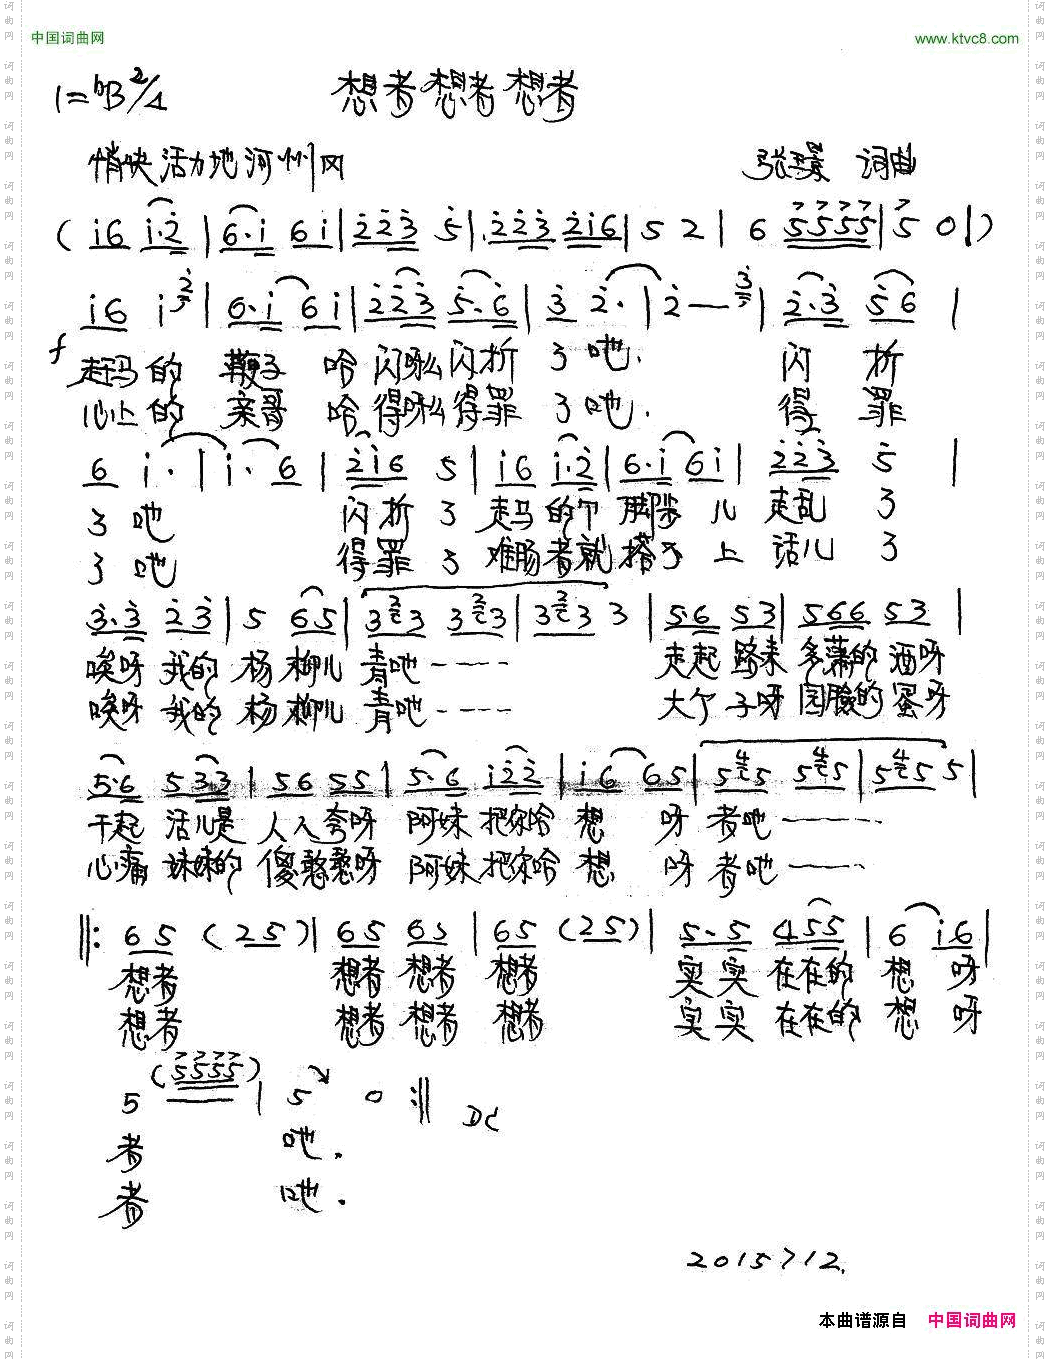 中国词曲网
www.ktvc8.com
1=bB 2/4 想者想者想者
稍快 活力地 河州风 张璟 词曲
( i6 i·2 | 6·i 6i | 223 5 | 223 2i6 | 5 2 | 6 5555 | 5 0 | )
i6 i | 6·i 6i | 223 5·6 | 3 2· | 2 — | 2·3 56 |
f 走马的 鞭子 哈 闪呀么闪折 了吔. 闪 折
心上的 亲哥 哈 得呀么得罪 了吔. 得 罪
6 i· | i· 6 | 2i6 5 | i6 i·2 | 6·i 6i | 223 5 |
了 吔 闪折 了 走马的个 脚步 儿 走乱 了
了 吔 得罪 了 难肠者就 搭不 上 话儿 了
3·3 23 | 5 65 | 3 3 3 3 | 3 3 3 | 5·6 53 | 566 53 |
唉呀 我的 杨 柳儿 青吔---- 走起 路来 多潇的 洒呀
唉呀 我的 杨 柳儿 青吔---- 大个 子呀 园脸的 蛋呀
5·6 533 | 56 55 | 5·6 i22 | i6 65 | 5 5 5 5 | 5 5 5 |
干起 活儿是 人人夸呀 阿妹 把你哈 想 呀 者吔----
心痛 妹妹的 傻憨憨呀 阿妹 把你哈 想 呀 者吔----
‖: 65 (25) | 65 65 | 65 (25) | 5·5 455 | 6 i6 |
想者 想者 想者 想者 实实 在在的 想 呀
想者 想者 想者 想者 实实 在在的 想 呀
5 (5555) | 5 0 :‖ DC
者 吔.
者 吔.
2015 7 12.
本曲谱源自 中国词曲网